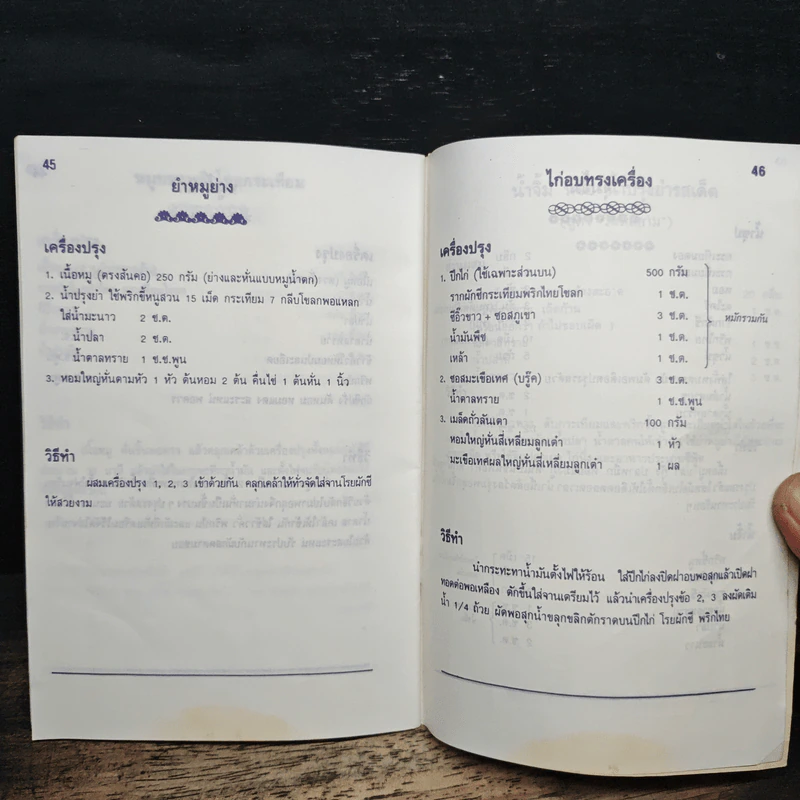 45
ยำหมูย่าง
เครื่องปรุง
1. เนื้อหมู (ตรงสันคอ) 250 กรัม (ย่างและหั่นแบบหมูน้ำตก)
2. น้ำปรุงยำ ใช้พริกขี้หนูสวน 15 เม็ด กระเทียม 7 กลีบโขลกพอแหลก
ใส่น้ำมะนาว 2 ช.ต.
น้ำปลา 2 ช.ต.
น้ำตาลทราย 1 ช.ช.พูน
3. หอมใหญ่หั่นตามหัว 1 หัว ต้นหอม 2 ต้น คื่นไช่ 1 ต้นหั่น 1 นิ้ว
วิธีทำ
ผสมเครื่องปรุง 1, 2, 3 เข้าด้วยกัน คลุกเคล้าให้ทั่วจัดใส่จานโรยผักชี
ให้สวยงาม
46
ไก่อบทรงเครื่อง
เครื่องปรุง
1. ปีกไก่ (ใช้เฉพาะส่วนบน) 500 กรัม
รากผักชีกระเทียมพริกไทยโขลก 1 ช.ต.
ซีอิ๊วขาว + ซอสภูเขา 3 ช.ต. หมักรวมกัน
น้ำมันพืช 1 ช.ต.
เหล้า 1 ช.ต.
2. ซอสมะเขือเทศ (บรู๊ค) 3 ช.ต.
น้ำตาลทราย 1 ช.ช.พูน
3. เมล็ดถั่วลันเตา 100 กรัม
หอมใหญ่หั่นสี่เหลี่ยมลูกเต๋า 1 หัว
มะเขือเทศผลใหญ่หั่นสี่เหลี่ยมลูกเต๋า 1 ผล
วิธีทำ
นำกระทะทาน้ำมันตั้งไฟให้ร้อน ใส่ปีกไก่ลงปิดฝาอบพอสุกแล้วเปิดฝา
ทอดต่อพอเหลือง ตักขึ้นใส่จานเตรียมไว้ แล้วนำเครื่องปรุงข้อ 2, 3 ลงผัดเติม
น้ำ 1/4 ถ้วย ผัดพอสุกน้ำขลุกขลิกตักราดบนปีกไก่ โรยผักชี พริกไทย